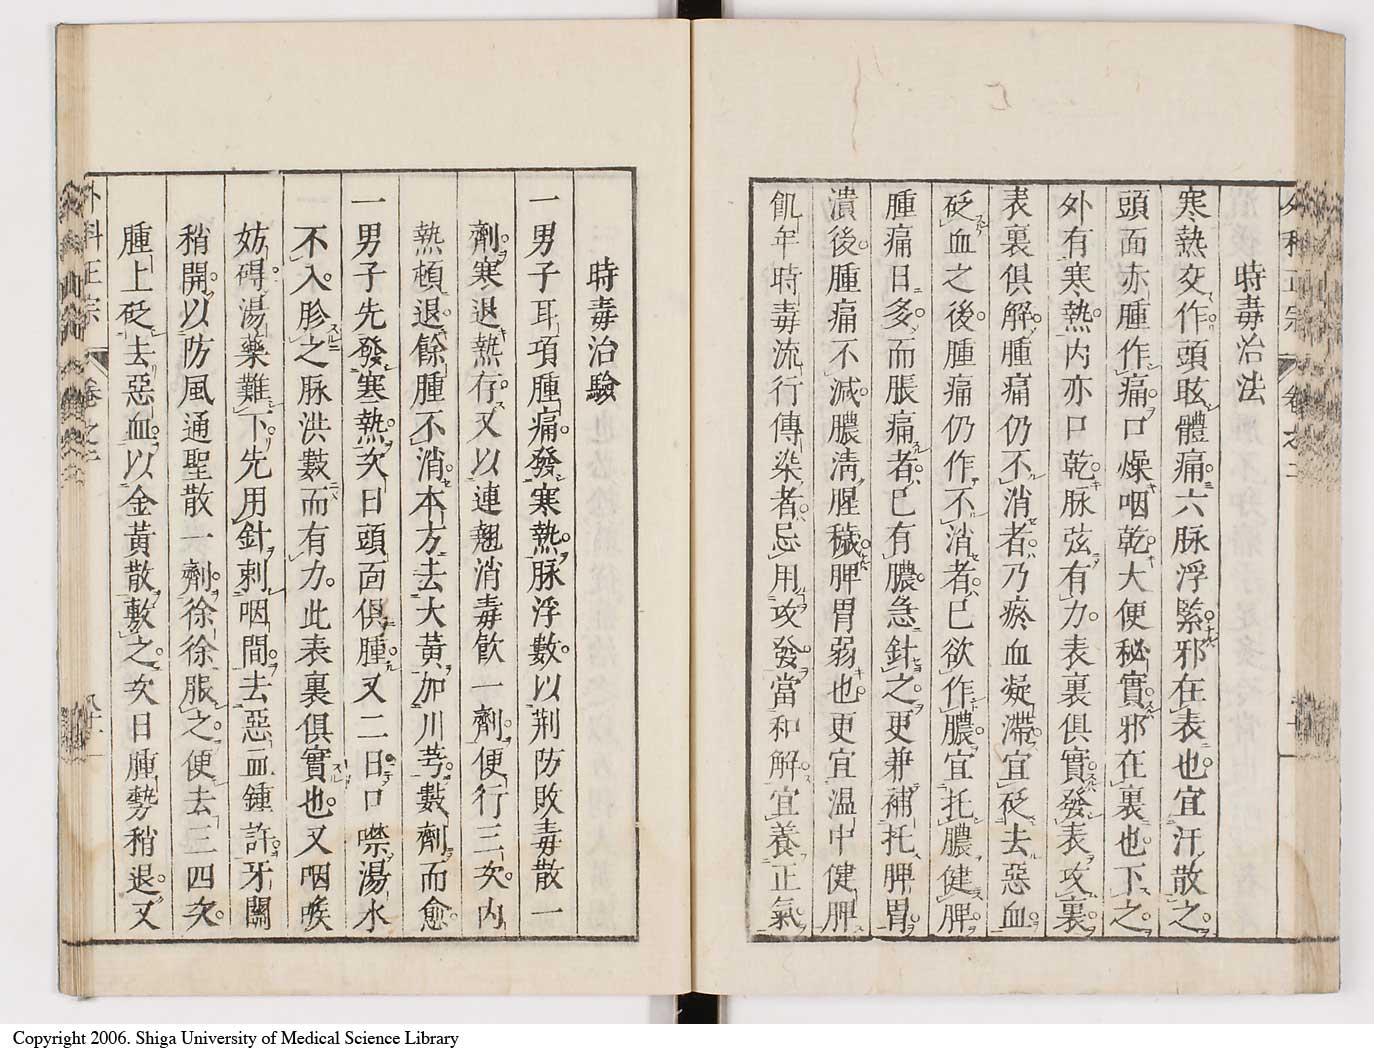 時毒治法
寒熱交作頭眩體痛六脉浮緊邪在表也宜汗散之
頭面亦腫作痛口燥咽乾大便秘實邪在裏也下之
外有寒熱内亦口乾脉弦有力表裏俱實發表攻裏
表裏俱解腫痛仍不消者乃瘀血凝滯宜砭去惡血
砭血之後腫痛仍作不消者已欲作膿宜托膿健脾
腫痛日多而脹痛者已有膿急針之更兼補托脾胃
潰後腫痛不減膿清腥穢脾胃弱也更宜温中健脾
飢年時毒流行傳染者忌用攻發當和解宜養正氣
時毒治驗
一男子耳項腫痛發寒熱脉浮數以荆防敗毒散一
劑寒退熱存又以連翹消毒飲一劑便行三次内
熱頓退餘腫不消本方去大黄加川芎數劑而愈
一男子先發寒熱次日頭面俱腫又二日口噤湯水
不入胗之脉洪數而有力此表裏俱實也又咽喉
妨碍湯藥難下先用針刺咽間去惡血鍾許牙關
稍開以防風通聖散一劑徐徐服之便去三四次
腫上砭去惡血以金黄散敷之次日腫勢稍退又
外科正宗 卷之二
Copyright 2006. Shiga University of Medical Science Library